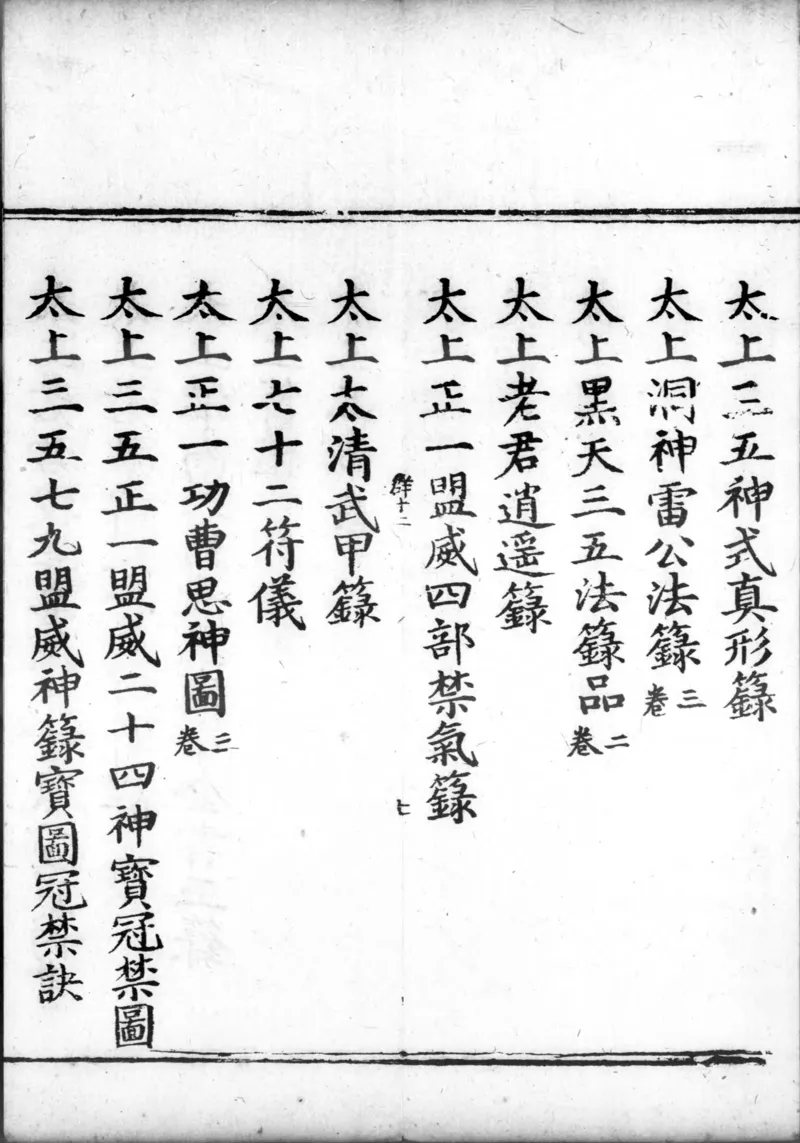 太上三五神式真形籙
太上洞神雷公法籙三卷
太上黑天三五法籙品二卷
太上老君逍遥籙
太上正一盟威四部禁氣籙
群十二
七
太上太清武甲籙
太上七十二符儀
太上正一功曹思神圖三卷
太上三五正一盟威二十四神寶冠禁圖
太上三五七九盟威神籙寶圖冠禁訣